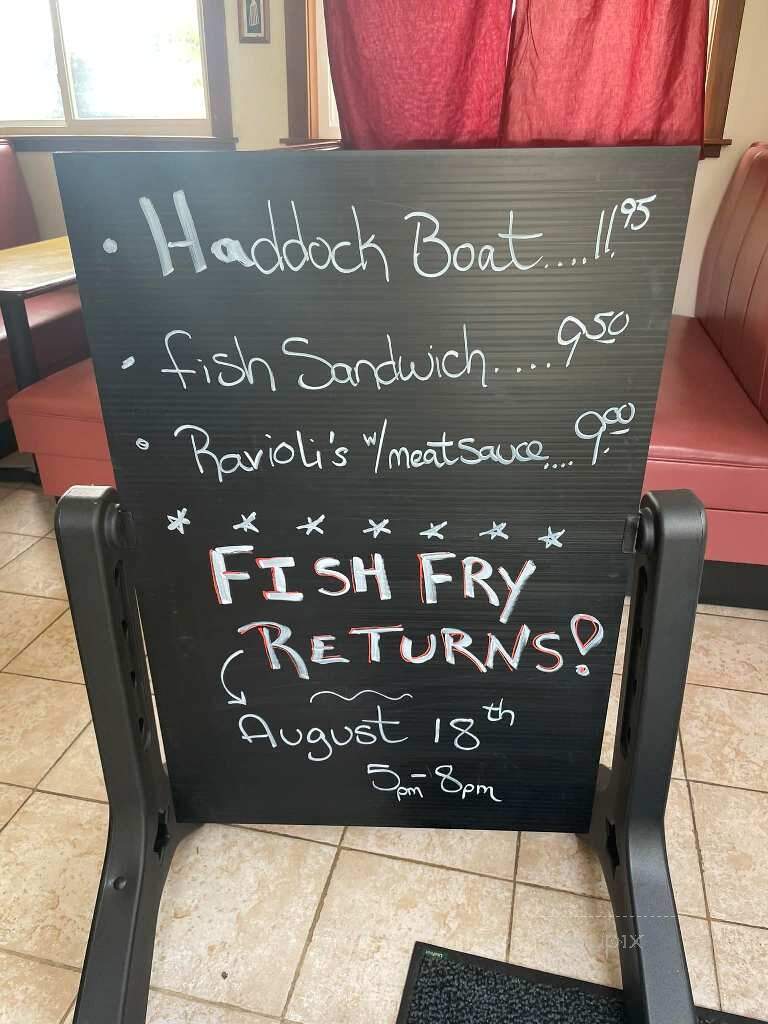 • Haddock Boat....11.95
• fish Sandwich.....9.50
• Ravioli's w/meatsauce....9.00
FISH FRY
RETURNS!
August 18th
5pm-8pm